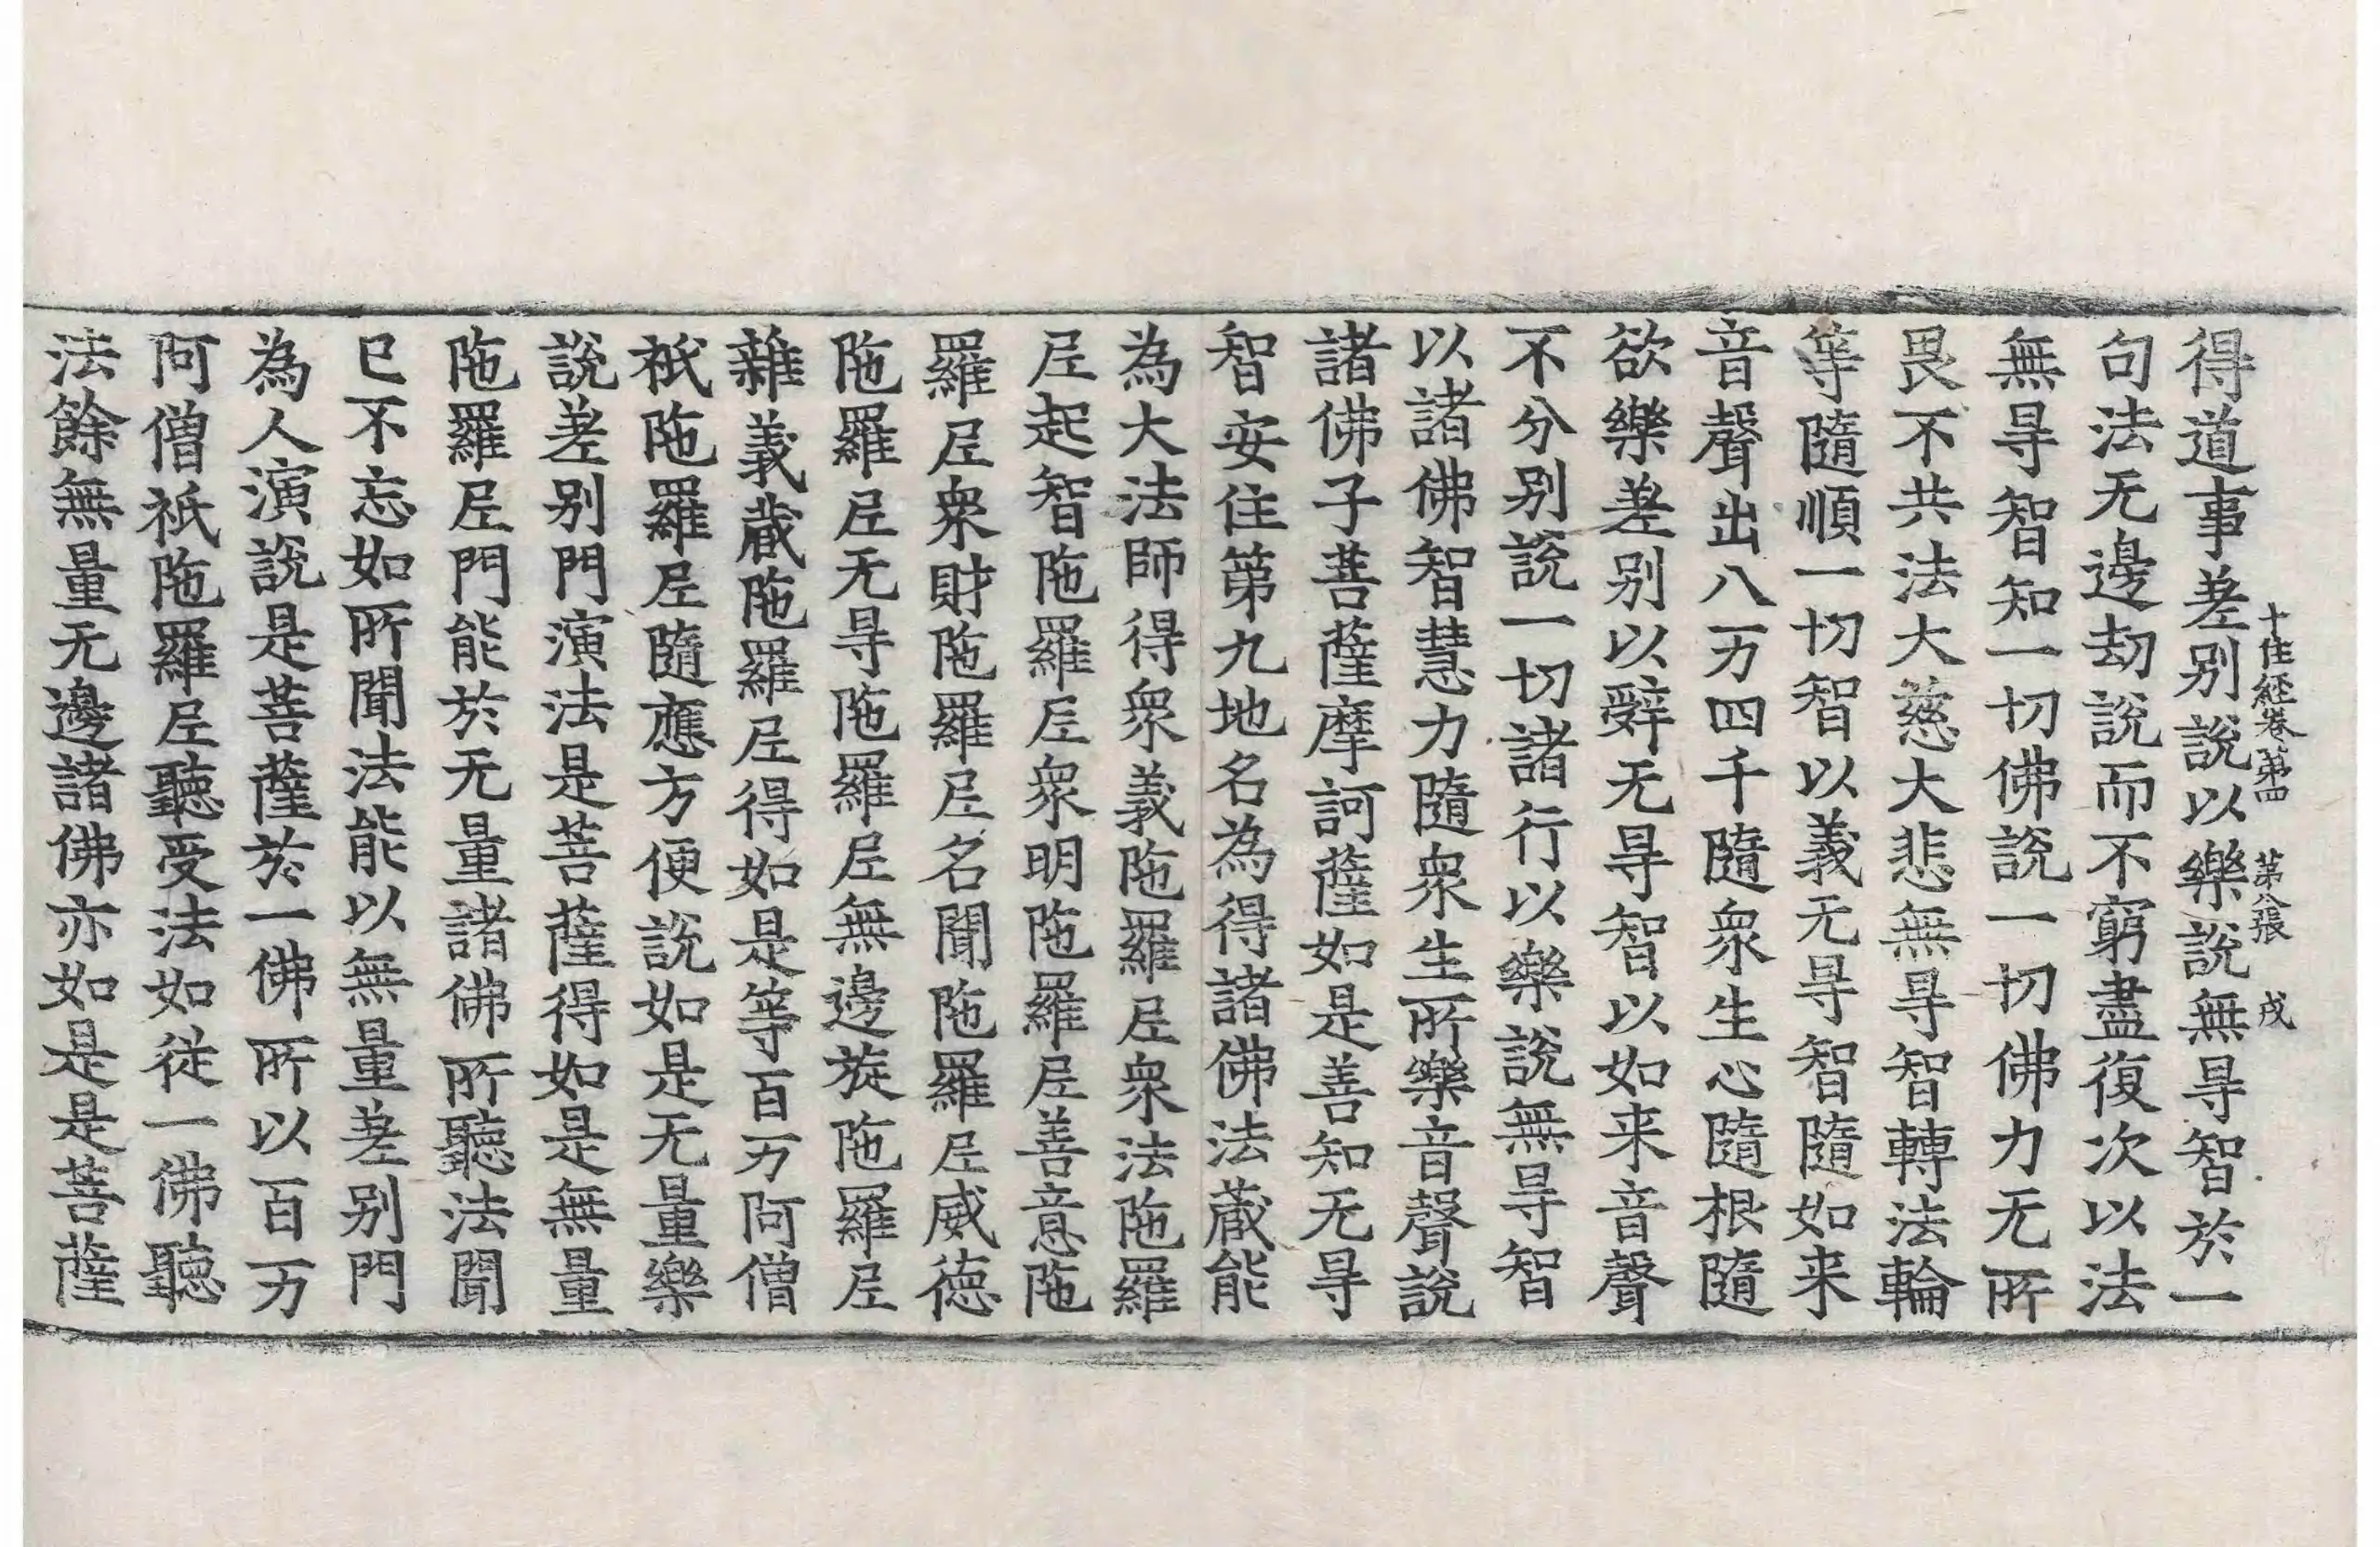 十住経卷第四 第八張 戌
得道事差别說以樂說無㝵智於一
句法无邊劫說而不窮盡復次以法
無㝵智知一切佛說一切佛力无所
畏不共法大慈大悲無㝵智轉法輪
等隨順一切智以義无㝵智隨如来
音聲出八万四千隨衆生心隨根隨
欲樂差别以辤无㝵智以如来音聲
不分别說一切諸行以樂說無㝵智
以諸佛智慧力隨衆生所樂音聲說
諸佛子菩薩摩訶薩如是善知无㝵
智安住第九地名為得諸佛法蔵能
為大法師得衆義陁羅𡰱衆法陁羅
𡰱起智陁羅𡰱衆明陁羅𡰱善意陁
羅𡰱衆財陁羅𡰱名聞陁羅𡰱威德
陁羅𡰱无㝵陁羅𡰱無邊㳬陁羅𡰱
雜義蔵陁羅𡰱得如是等百万阿僧
祇陁羅𡰱隨應方便說如是无量樂
說差别門演法是菩薩得如是無量
陁羅𡰱門能於无量諸佛所聽法聞
已不忘如所聞法能以無量差别門
為人演說是菩薩於一佛所以百万
阿僧祇陁羅𡰱聽受法如従一佛聽
法餘無量无邊諸佛亦如是是菩薩